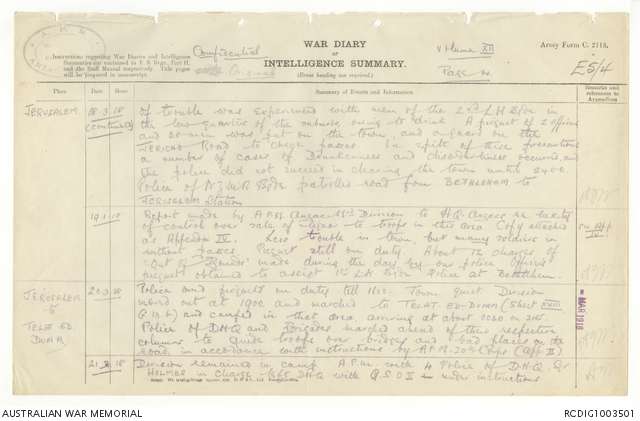 WAR DIARY
or
INTELLIGENCE SUMMARY.
(Erase heading not required.)
Army Form C. 2118.
Instructions regarding War Diaries and Intelligence
Summaries are contained in F. S. Regs., Part II.
and the Staff Manual respectively. Title pages
will be prepared in manuscript.
Confidential
Original
Volume XII
Page
E5/4
Place
Date
Hour
Summary of Events and Information
Remarks and
references to
Appendices
JERUSALEM
18.3.18
(continued)
of trouble was experienced with men of the 2nd L H Bde in
the low quarter of the suburbs owing to drink. A picquet of 2 officers
and 20 men was put on the town, and a guard on the
JERICHO Road to check passes. In spite of these precautions
a number of cases of Drunkenness and disorderliness occurred, and
the police did not succeed in clearing the town until 2400.
Police of N.Z.M.R. Bde patrolled road from BETHLEHEM to
JERUSALEM Station
19.3.18
Report made by A.P.M. Anzac Mtd Division to H.Q. Anzacs re laxity
of control over sale of liquor to troops in this area Copy attached
as Appendix IV. Less trouble in town, but many soldiers in
without passes. Picquet still on duty. About 72 charges of
"Out of Bounds" made during the day by our police Officers
picquet obtained to assist 1st L H Bde Police at Bethlehem.
JERUSALEM
to
TELAT ED
DUMM
20.3.18
Police and picquet on duty till Town quiet Division
moved out at 1900 and marched to TELAT. ED. DUMM (Sheet
and camped in that area arriving at about 2030 on 21st
Police of D.H.Q and Brigades marched ahead of their respective
columns to guide troops over bridges and bad places on the
road, in accordance with instructions by A.P.M. 20th Corps (App V)
MAR 1918
21.3.18
Division remained in camp A.P.M. with 4 Police of D.H.Q.
HOLMES in Charge left D.H.Q with G.S.O II under instructions
AUSTRALIAN WAR MEMORIAL
RCDIG1003501